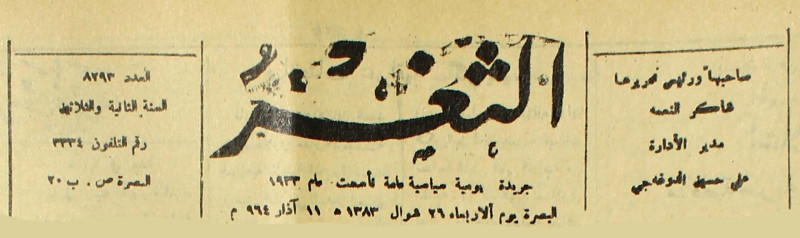 صاحبها ورئيس تحريرها
شاكر النعمه
مدير الأدارة
علي حسين الدوغه جي
الثغر
جريدة يومية سياسية عامة تأسست عام ١٩٣٣
البصرة يوم ألاربعاء ٢٦ شوال ١٣٨٣ ه ١١ آذار ٩٦٤ م
العدد ٨٢٩٣
السنة الثانية والثلاثين
رقم التلفون ٣٣٣٤
البصرة ص . ب ٢٠